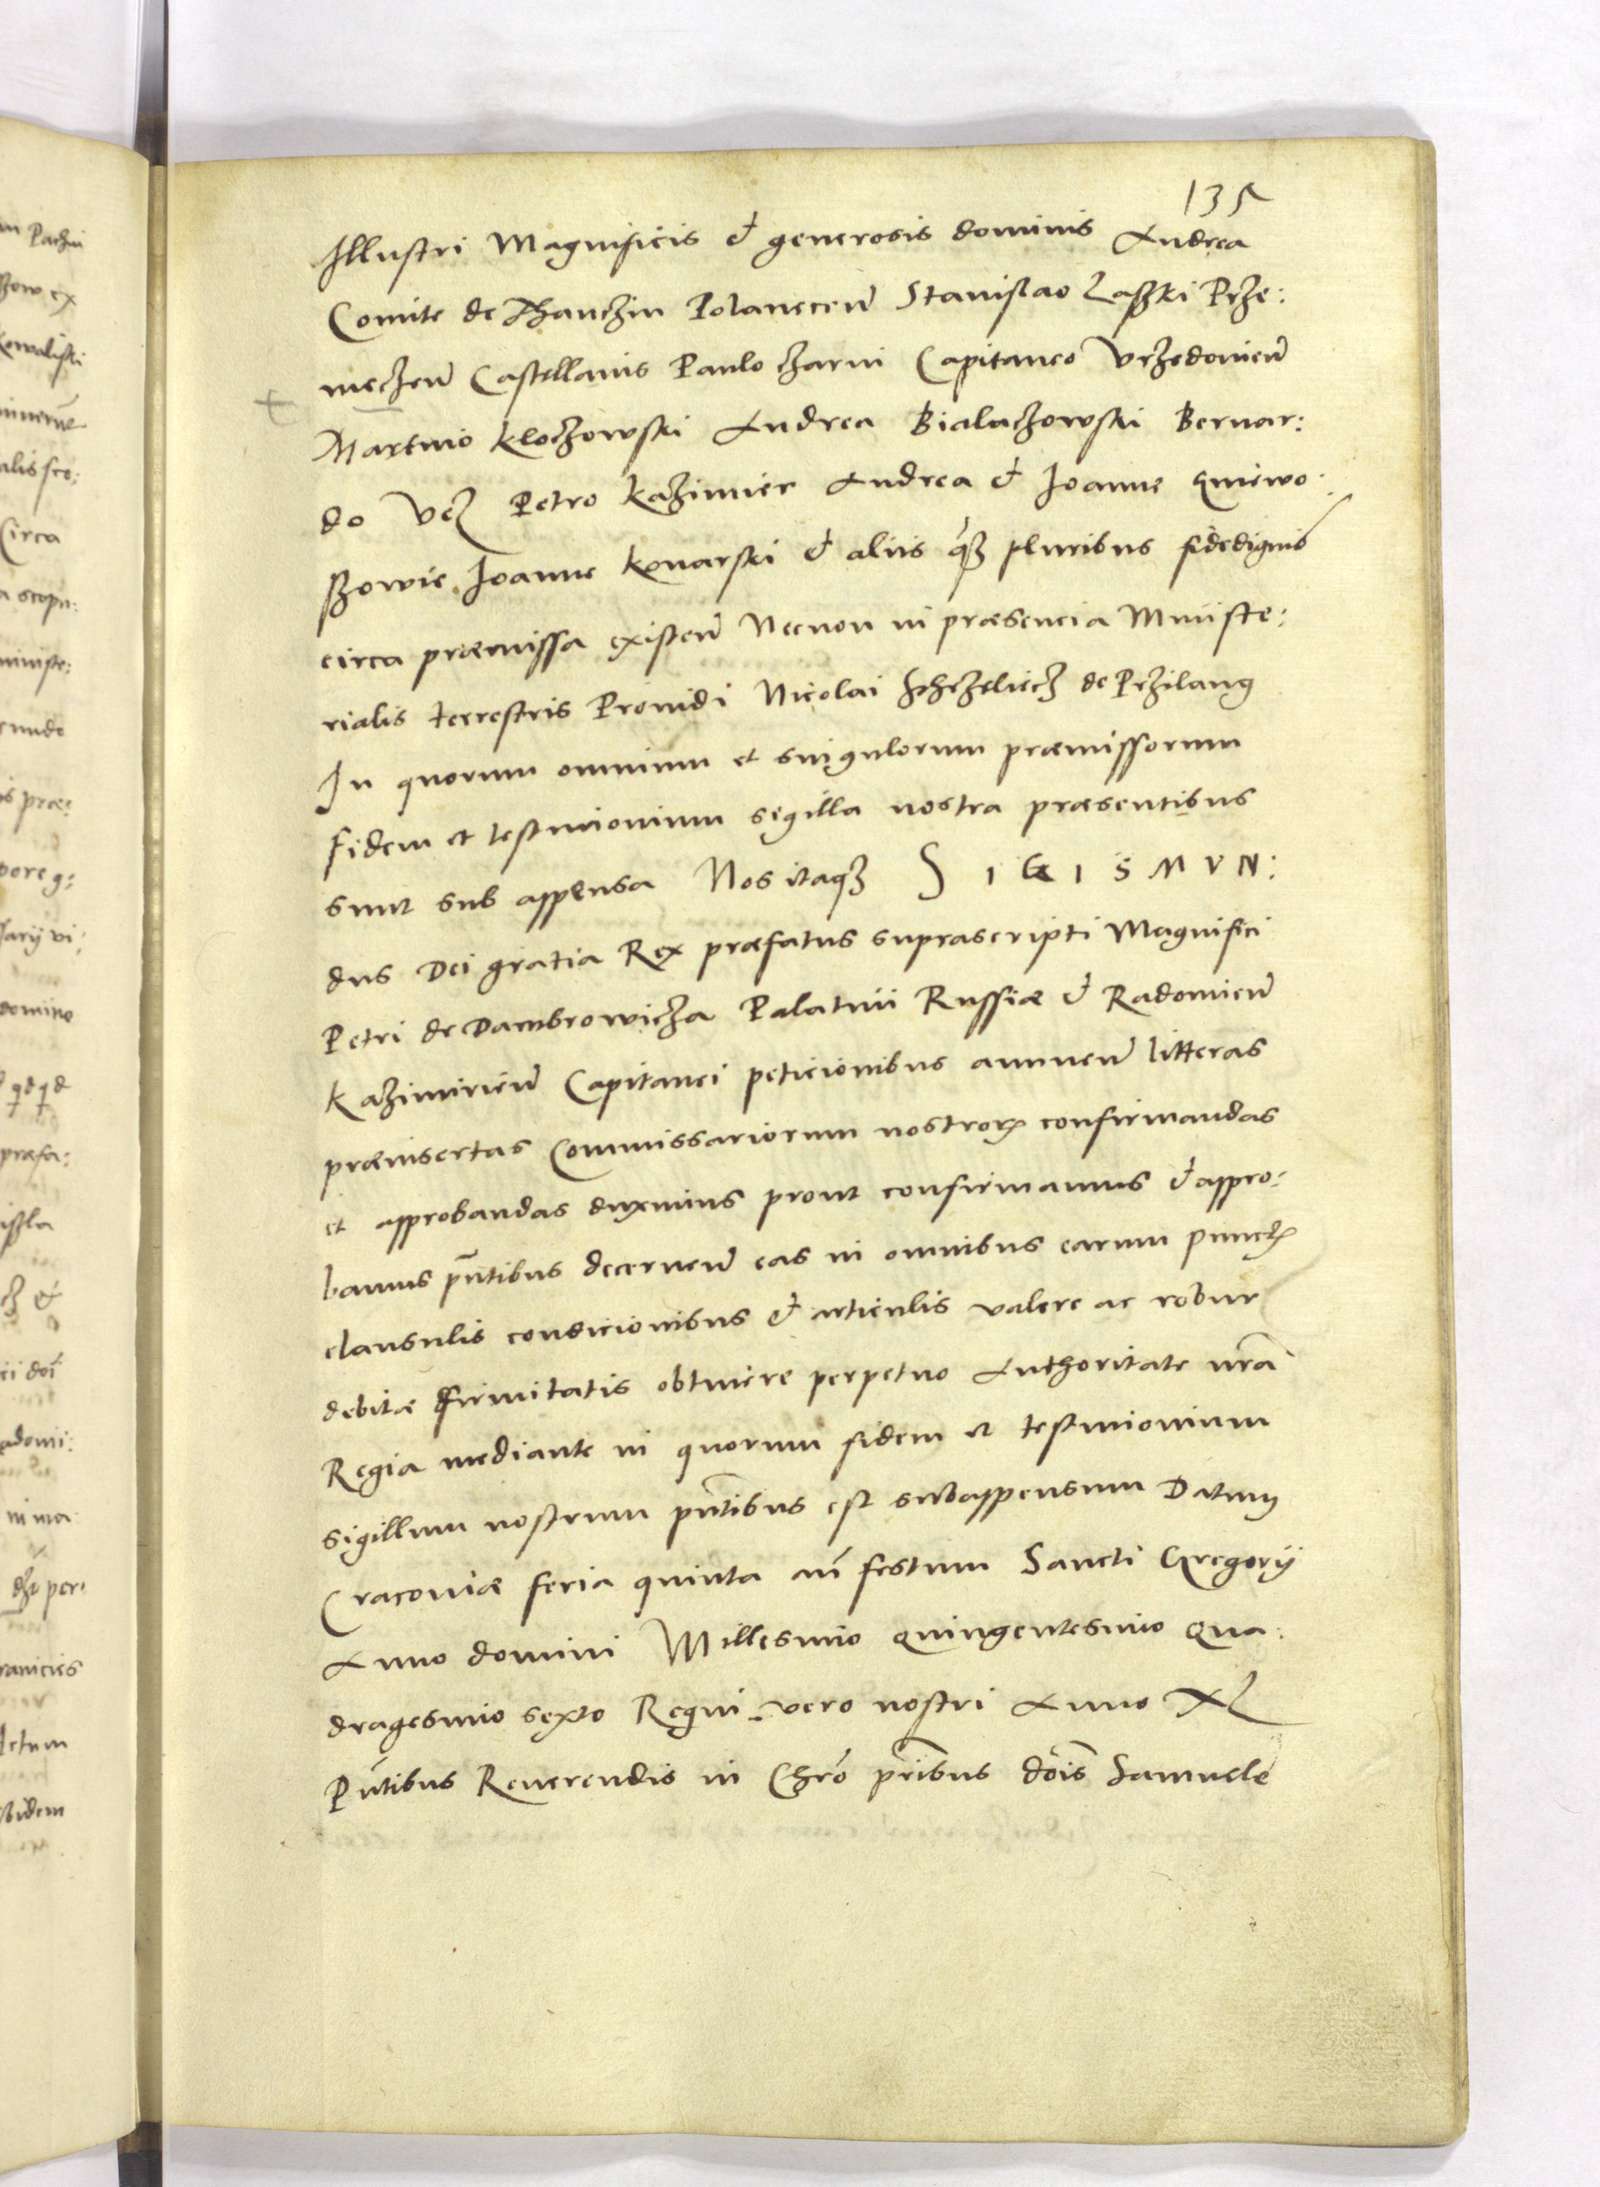 135
Illustri Magnificis & generosis dominis Andrea
Comite de Thanczin Polanecen̄ Stanislao Laszki Prze:
meczen̄ Castellanis Paulo czarni Capitaneo Vrzedovien̄
Martino Kloczowski Andrea Bialaczowski Bernar:
do Petro Kazimier Andrea & Joanne Gniewo:
szowie Joanne Konarski & aliis q̃ꝫ pluribus fidedignis
circa præmissa existen̄ Necnon in præsencia Ministe:
rialis terrestris Providi Nicolai de Przilang
In quorum omnium et singulorum præmissorum
fidem et testimonium sigilla nostra præsentibus
sunt sub appensa Nos itaqꝫ SIGISMVN:
dus Dei gratia Rex præfatus suprascripti Magnifici
Petri de Dambrowicza Palatini Russiæ & Radomien̄
Kazimirien̄ Capitanei peticionibus annuen̄ litteras
præinsertas Commissariorum nostroꝝ confirmandas
et approbandas duximus prout confirmamus & appro:
bamus pn̄tibus decernen̄ eas in omnibus earum punctꝭ
clausulis condicionibus & articulis valere ac robur
debitæ firmitatis obtinere perpetuo Authoritate nr̄a
Regia mediante in quorum fidem et testimonium
sigillum nostrum pn̄tibus est subappensum Datum
Cracoviæ feria quinta an̄ festum Sancti Gregorij
Anno domini Millesimo quingentesimo qua:
dragesimo sexto Regni vero nostri Anno XL
Pn̄tibus Reverendis in Chr̄o pr̄ibus dōis Samuele